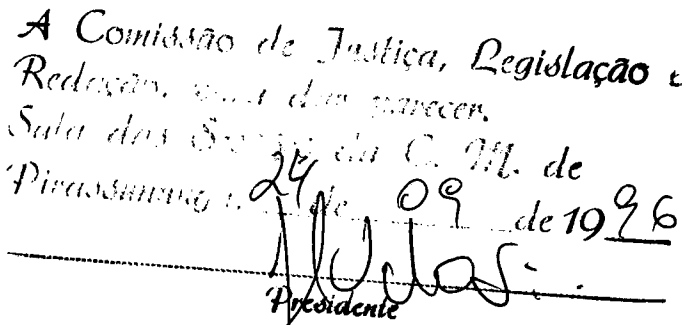 A Comissão de Justiça, Legislação e
Redação, para dar parecer.
Sala das Sessões da C. M. de
Pirassununga, 24 de 09 de 1996
Presidente